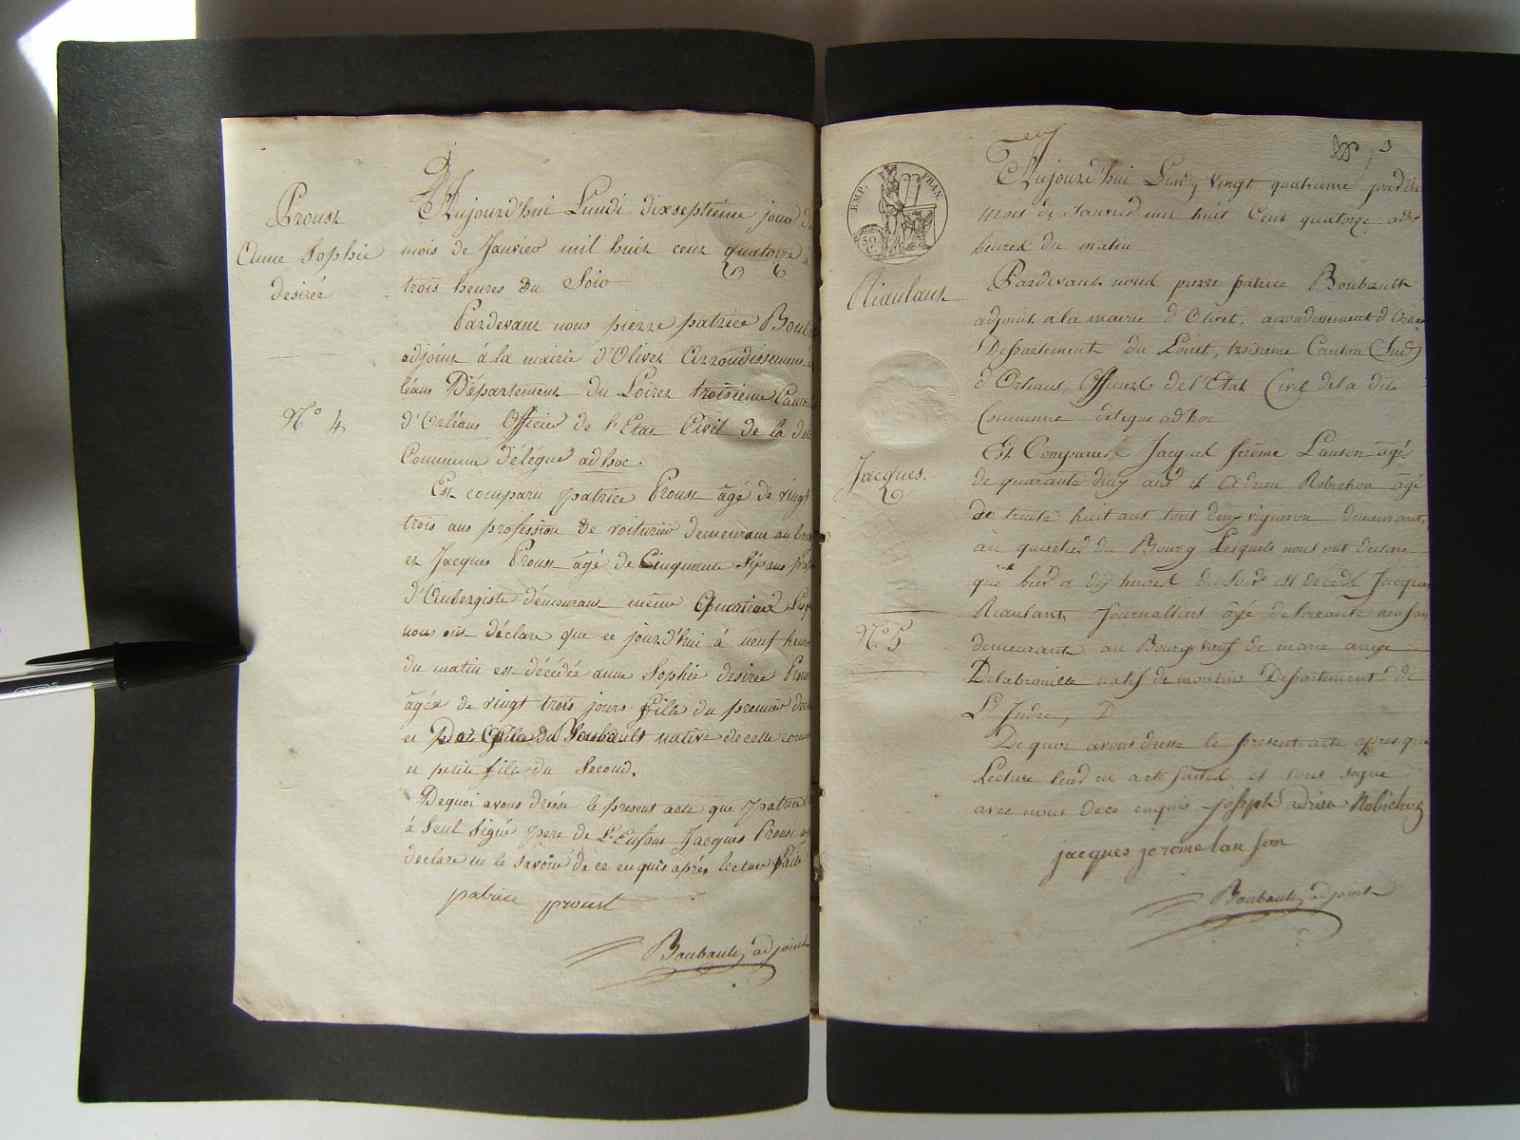 Proust
Anne Sophie
desirée
N° 4
Aujourd'hui Lundi dixseptieme jour du
mois de Janvier mil huit cent quatorze a
trois heures du Soir
Pardevant nous pierre patrice Boub
adjoint à la mairie d'Olivet Arrondissement
léans Département du Loiret troisieme Canton
d'Orléans Officier de l'Etat Civil de la dite
Commune délégué ad hoc.
Est comparu patrice Proust âgé de vingt
trois ans profession de voiturier demeurant au
et Jacques Proust âgé de Cinquante
d'Aubergiste demeurant même Quartier
nous ont déclaré que ce jourd'hui à neuf heures
du matin est décédée anne Sophie desirée Prou
âgée de vingt trois jours fille du premier
et native de cette com
et petite fille du Second.
Dequoi avons dressé le présent acte que patrice
à Seul Signé pere de l'Enfant Jacques Proust
déclaré ne le Savoir de ce enquis après lecture faite
patrice proust
Boubault, adjoint
EMP. FRAN.
50
C.
Riaulant
Jacques.
N° 5
Aujourd'hui Lundi vingt quatrieme jour du
mois de Janvier mil huit Cent quatorze a dix
heures du matin
Pardevant nous pierre patrice Boubault
adjoint a la mairie d'Olivet, arrondissement d'Orlea
Département du Loiret, troisieme Canton (Sud)
d'Orléans, Officier de l'Etat Civil de la dite
Commune delegue ad hoc
Est Comparu Jacques jérôme Lanson âgé
de quarante ans et Robichon âgé
de trente huit ans tout deux vigneron demeurant
au quartier du Bourg Lesquels nous ont declaré
que hier a dix heures du Soir est décédé Jacques
Riaulant, Journallier âgé de Soixante
demeurant au Bourg veuf de marie
natif de Departement de
L'Indre,
De quoi avons dressé le présent acte apres que
Lecture leur en a été faite et ont signé
avec nous de ce enquis joseph Robichon
jacques jerome lanson
Boubault, adjoint